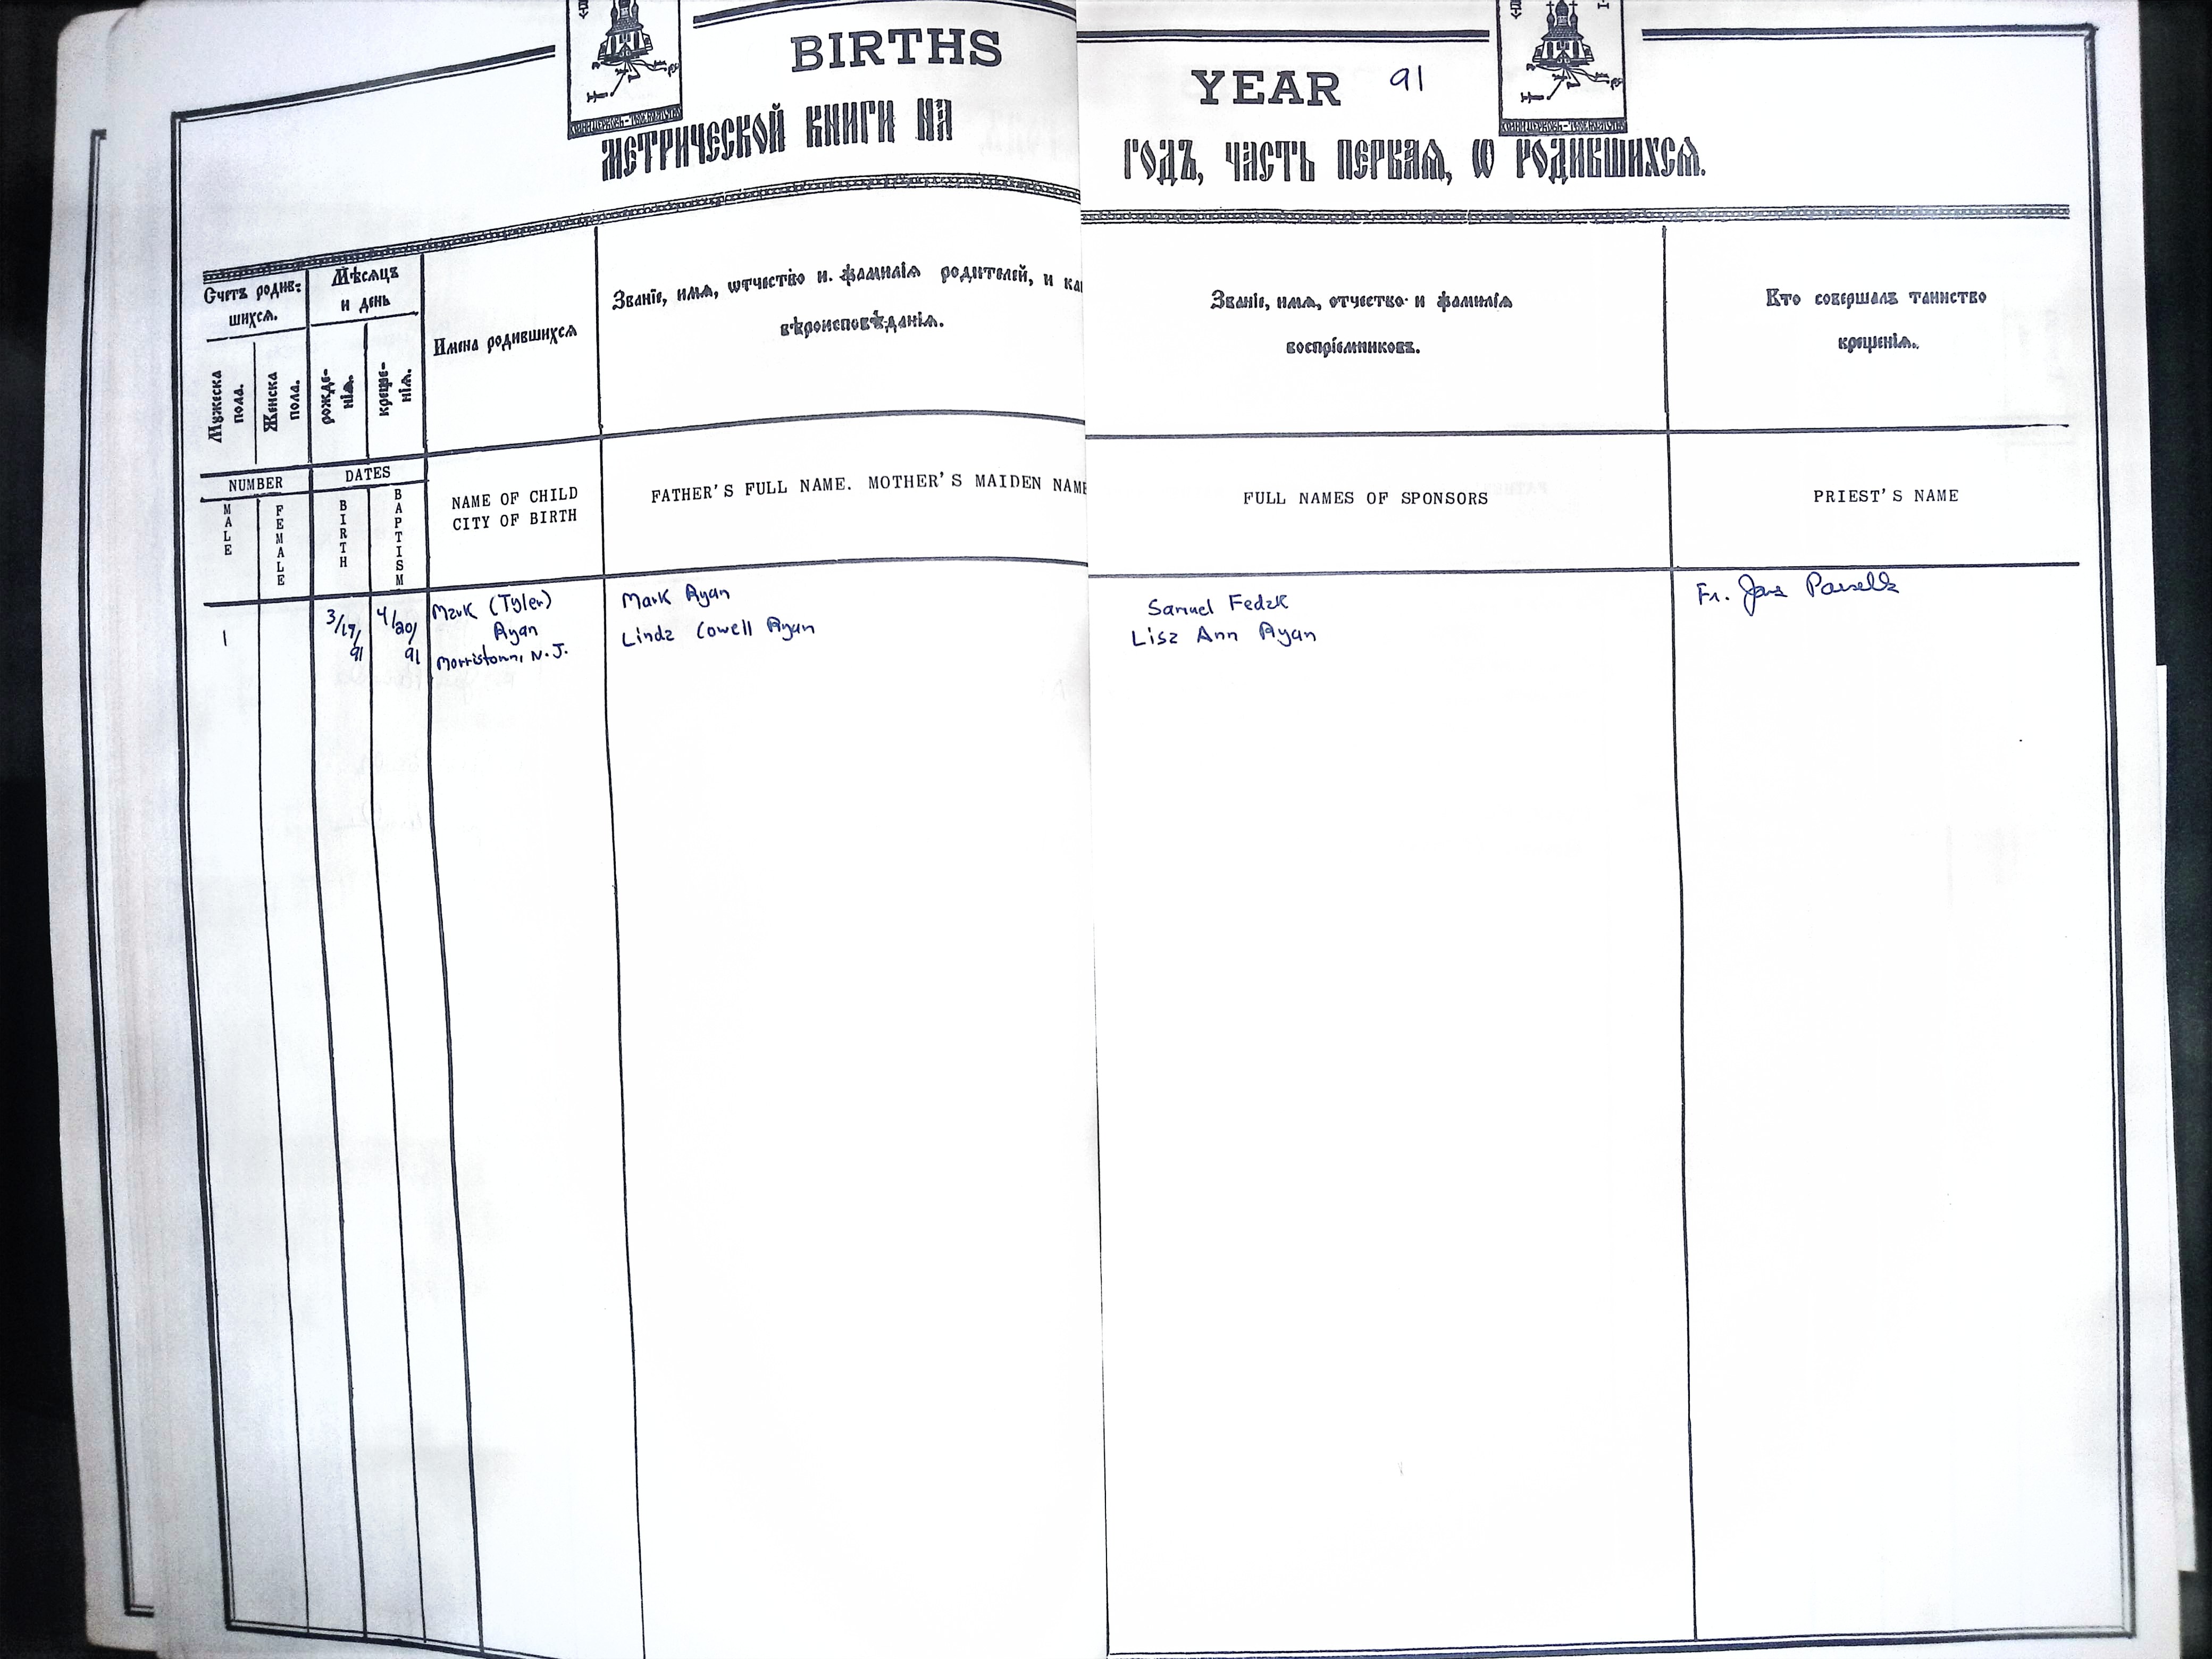 BIRTHS
YEAR 91
МЕТРИЧЕСКОЙ КНИГИ НА
ГОДЪ, ЧАСТЬ ПЕРВАѦ, Ѡ РОДИВШИХСѦ.
Счетъ родив-
шихсѧ.
Мужеска
пола.
Женска
пола.
Мѣсяцъ
и день
рожде-
нїѧ.
креще-
нїѧ.
Имена родившихсѧ
Званїе, имѧ, ѡтчество и. фамилїѧ родителей, и ка
вѣроисповѣданїѧ.
Званїе, имѧ, отчество и фамилїѧ
воспрїемниковъ.
Кто совершалъ таинство
крещенїѧ.
NUMBER
MALE
FEMALE
DATES
BIRTH
BAPTISM
NAME OF CHILD
CITY OF BIRTH
FATHER'S FULL NAME. MOTHER'S MAIDEN NAME
FULL NAMES OF SPONSORS
PRIEST'S NAME
1
3/19/
91
4/20/
91
Mark (Tyler)
Ryan
Morristown, N.J.
Mark Ryan
Linda Cowell Ryan
Samuel Fedak
Lisa Ann Ryan
Fr.